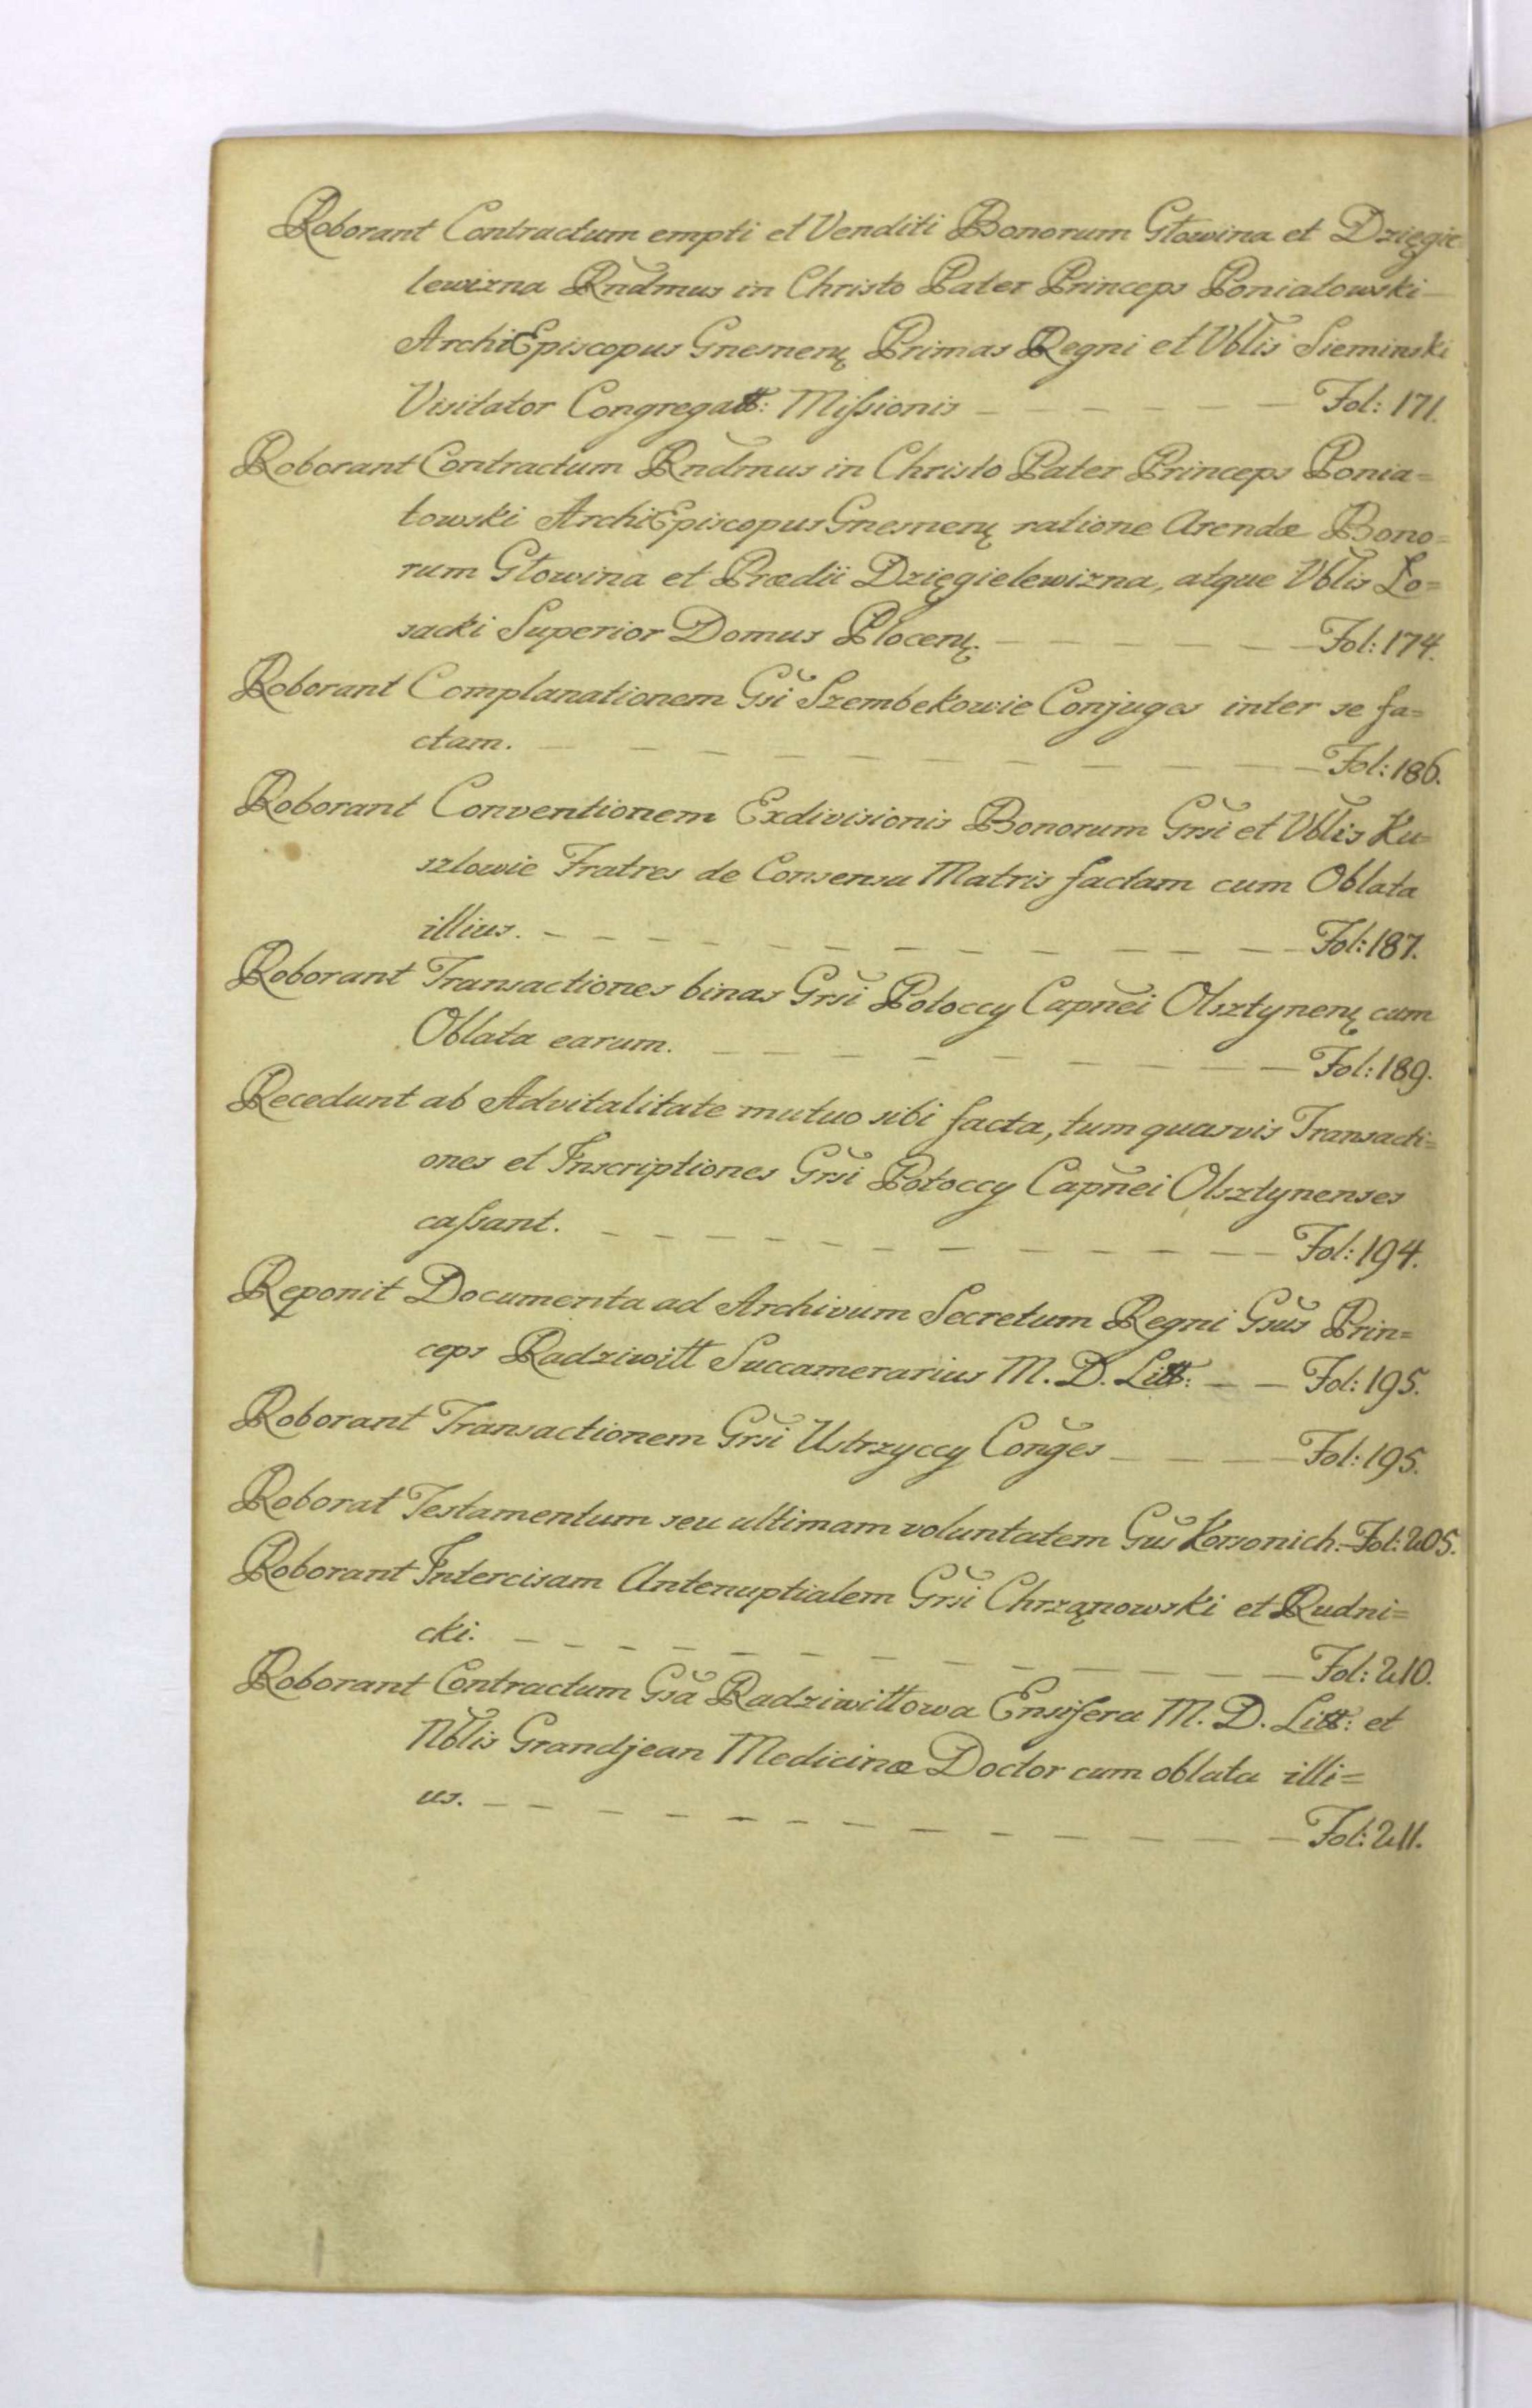 Roborant Contractum empti et Venditi Bonorum Głowina et Dzięgie
lewizna Rndmus in Christo Pater Princeps Poniatowski
ArchiEpiscopus Gnesnen̄ Primas Regni et Vblis Sieminski
Visitator Congregatt: Missionis — — — — — Fol: 171.
Roborant Contractum Rndmus in Christo Pater Princeps Ponia=
towski ArchiEpiscopus Gnesnen̄ ratione Arendæ Bono=
rum Głowina et Prædii Dzięgielewizna, atque Vblis Lo=
sacki Superior Domus Plocen̄. — — — — — Fol: 174.
Roborant Complanationem Gsi Szembekowie Conjuges inter se fa=
ctam. — — — — — — — — — — Fol: 186.
Roborant Conventionem Exdivisionis Bonorum Grsi et Vblis Ku=
szlowie Fratres de Consensu Matris factam cum Oblata
illius. — — — — — — — — — — Fol: 187.
Roborant Transactiones binas Grsi Potoccy Capnei Olsztynen̄ cum
Oblata earum. — — — — — — — — Fol: 189.
Recedunt ab Advitalitate mutuo sibi facta, tum quasvis Transacti=
ones et Inscriptiones Grsi Potoccy Capnei Olsztynenses
cassant. — — — — — — — — — Fol: 194.
Reponit Documenta ad Archivum Secretum Regni Gsus Prin=
ceps Radziwiłł Succamerarius M. D. Litt: — — Fol: 195.
Roborant Transactionem Grsi Ustrzyccy Conges — — — Fol: 195.
Roborat Testamentum seu ultimam voluntatem Gus Korsonich. Fol: 205.
Roborant Intercisam Antenuptialem Grsi Chrząnowski et Rudni=
cki. — — — — — — — — — — Fol: 210.
Roborant Contractum Gsa Radziwiłłowa Ensifera M. D. Litt: et
Nblis Grandjean Medicinæ Doctor cum oblata illi=
us. — — — — — — — — — — Fol: 211.